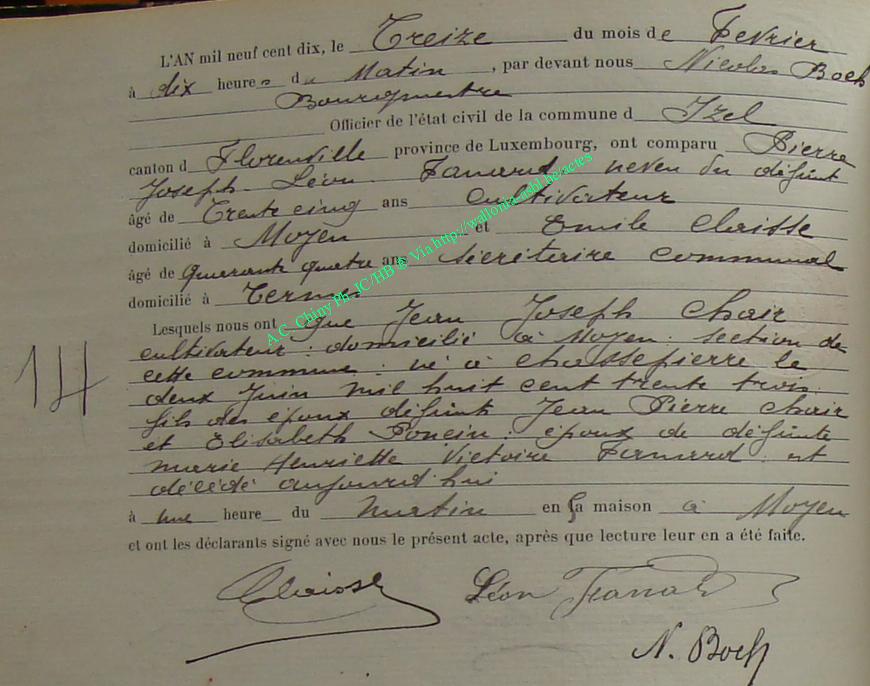 L'AN mil neuf cent dix, le Treize du mois de Fevrier
à dix heures du Matin, par devant nous Nicolas Boch
Bourgmestre
Officier de l'état civil de la commune d Izel
canton d Florenville province de Luxembourg, ont comparu Pierre
Joseph Léon Fanard neveu du défunt
âgé de Trente cinq ans cultivateur
domicilié à Moyen et Emile Claisse
âgé de quarante quatre ans secrétaire communal
domicilié à Termes
Lesquels nous ont que Jean Joseph Chair
cultivateur domicilié à Moyen section de
cette commune né à Chassepierre le
deux Juin mil huit cent trente trois
fils des époux défunts Jean Pierre Chair
et Elisabeth Poncin époux de défunte
Marie Henriette Victoire Fanard est
décédé aujourd'hui
à une heure du matin en sa maison à Moyen
et ont les déclarants signé avec nous le présent acte, après que lecture leur en a été faite.
Claisse Léon Fanard
N. Boch
14
A.C. Chiny Ph. JC/HB ® Via http://wallonia-asbl.be/actes